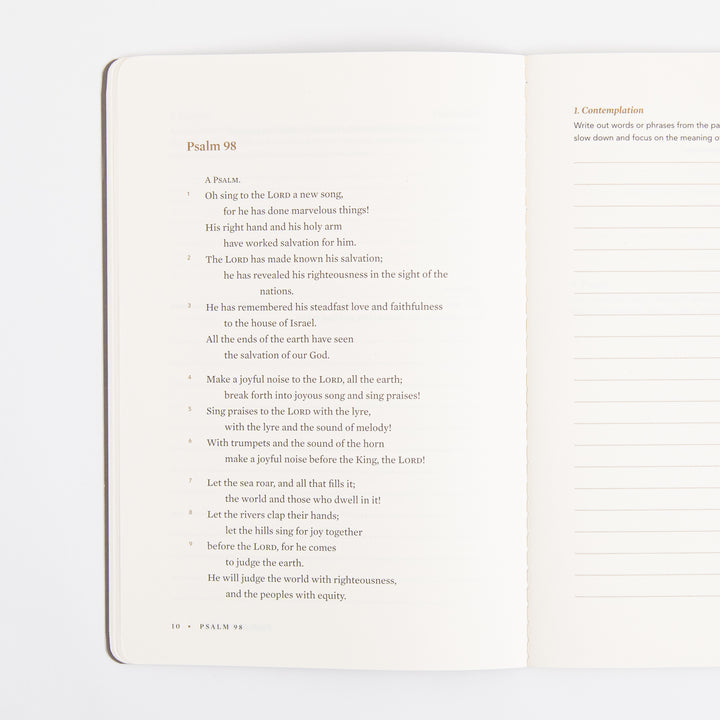 Psalm 98
A PSALM.
1 Oh sing to the LORD a new song,
for he has done marvelous things!
His right hand and his holy arm
have worked salvation for him.
2 The LORD has made known his salvation;
he has revealed his righteousness in the sight of the
nations.
3 He has remembered his steadfast love and faithfulness
to the house of Israel.
All the ends of the earth have seen
the salvation of our God.
4 Make a joyful noise to the LORD, all the earth;
break forth into joyous song and sing praises!
5 Sing praises to the LORD with the lyre,
with the lyre and the sound of melody!
6 With trumpets and the sound of the horn
make a joyful noise before the King, the LORD!
7 Let the sea roar, and all that fills it;
the world and those who dwell in it!
8 Let the rivers clap their hands;
let the hills sing for joy together
9 before the LORD, for he comes
to judge the earth.
He will judge the world with righteousness,
and the peoples with equity.
10 • PSALM 98
1. Contemplation
Write out words or phrases from the
slow down and focus on the meaning